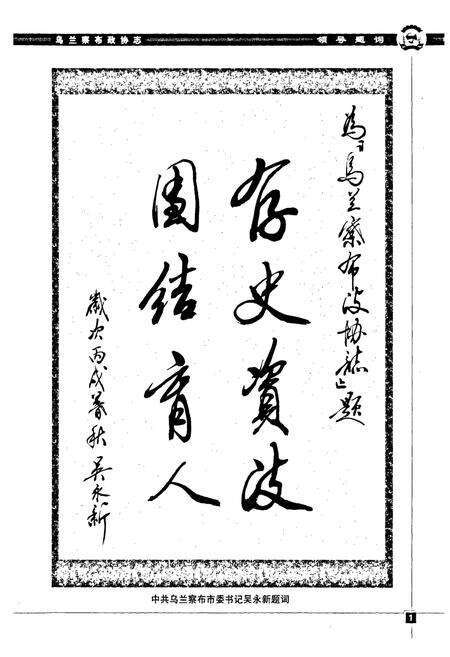 乌兰察布政协志
领导题词
為《烏兰察布政协誌》题
存史資政
团结育人
歲次丙戌暮秋 吴永新
中共乌兰察布市委书记吴永新题词
1